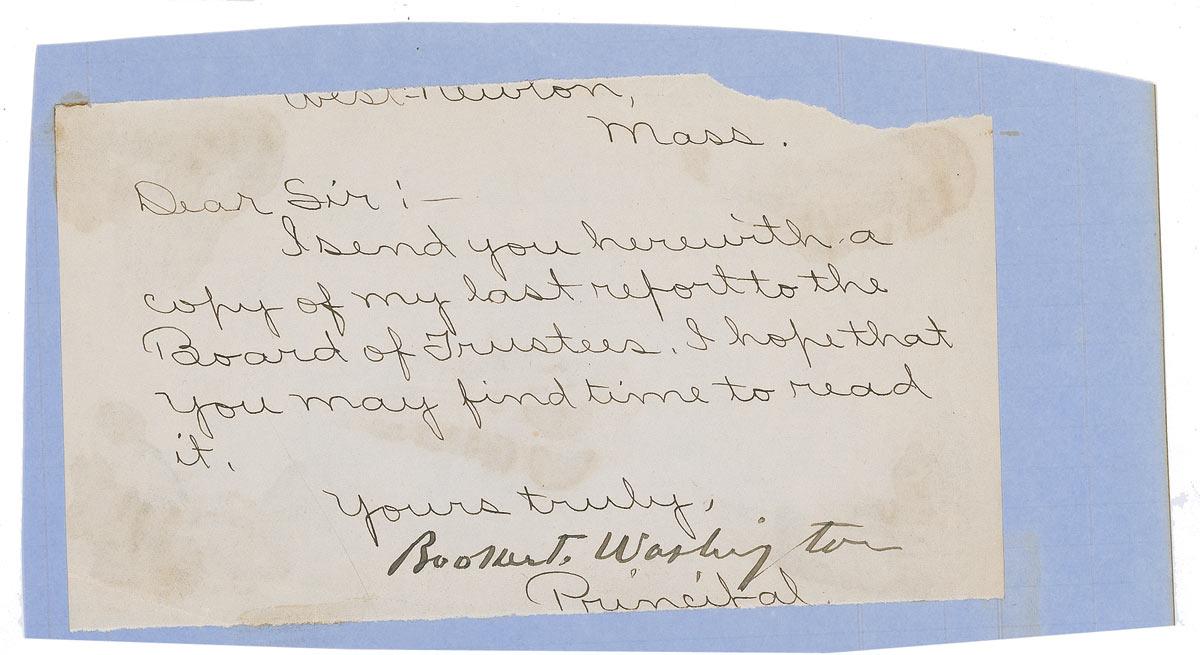 West-Newton,
Mass.
Dear Sir:—
I send you herewith a
copy of my last report to the
Board of Trustees. I hope that
you may find time to read
it.
Yours truly,
Booker T. Washington
Principal.